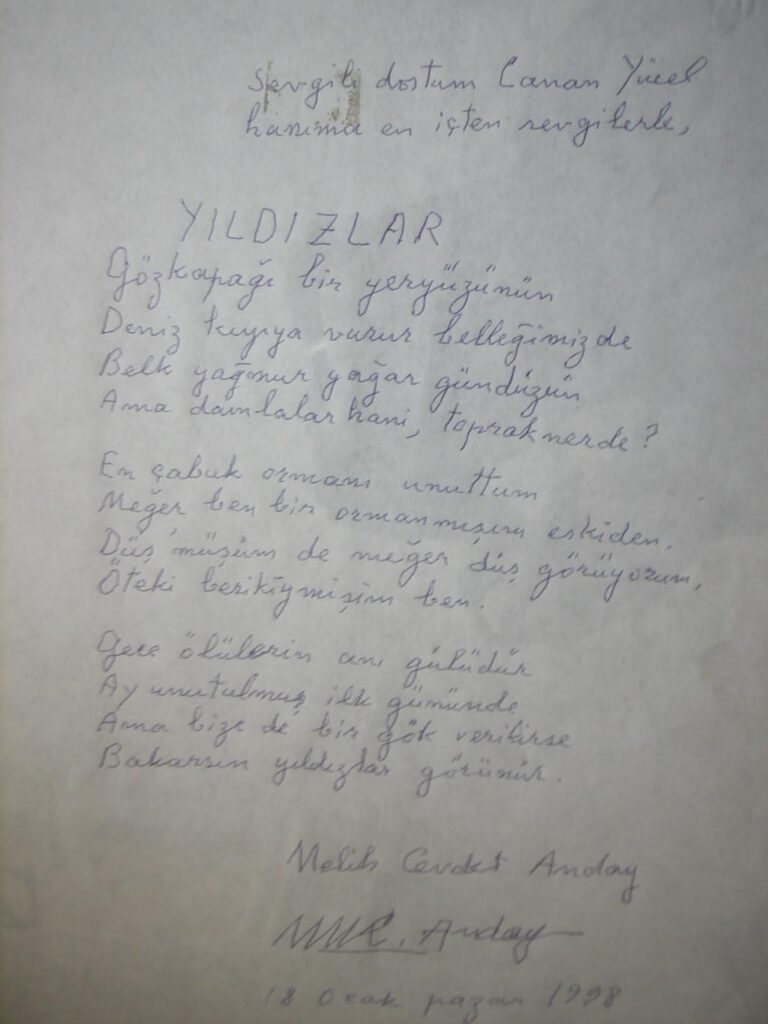 Sevgili dostum Canan Yücel
hanıma en içten sevgilerle,
YILDIZLAR
Gözkapağı bir yeryüzünün
Deniz kıyıya vurur belleğimizde
Belk yağmur yağar gündüzün
Ama damlalar hani, toprak nerde?
En çabuk ormanı unuttum
Meğer ben bir ormanmışım eskiden,
Düş'müşüm de meğer düş görüyorum,
Öteki berikiymişim ben.
Gece ölülerin anı gülüdür
Ay unutulmuş ilk gününde
Ama bize de bir gök verilirse
Bakarsın yıldızlar görünür.
Melih Cevdet Anday
Anday
18 Ocak pazar 1998